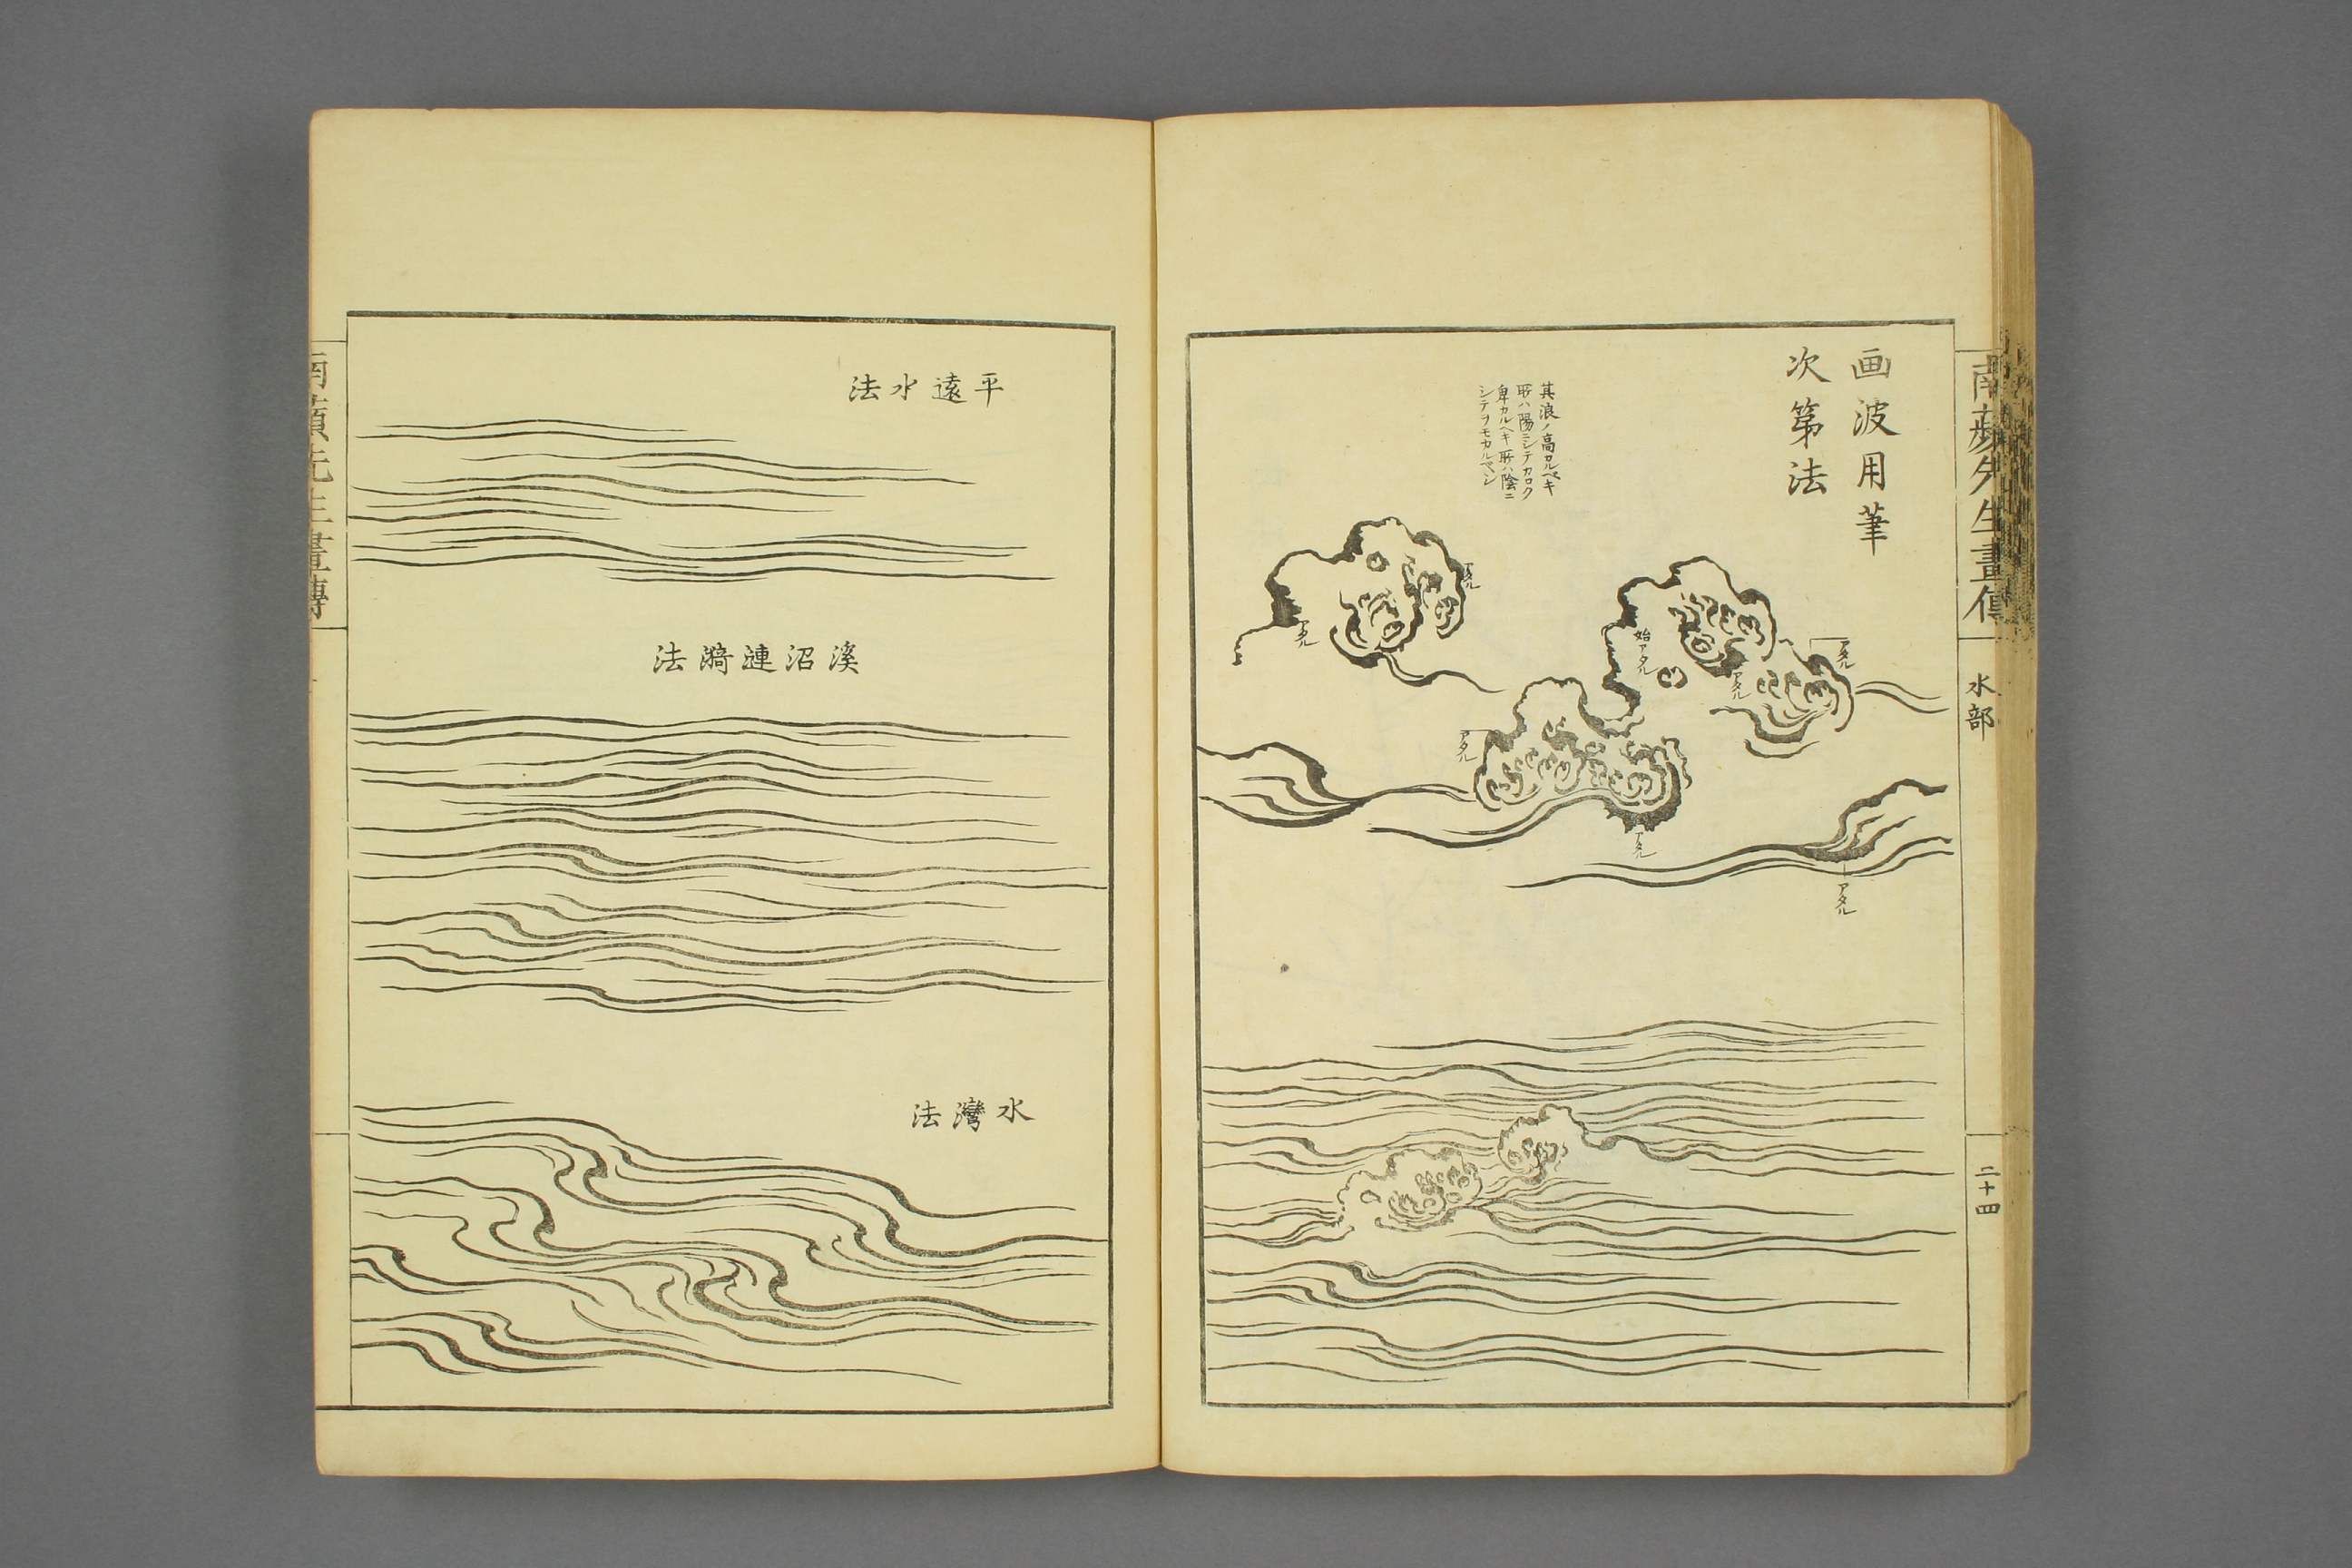 南蘋先生畫傳
水部
二十四
画波用筆
次第法
其浪ノ高カルベキ
所ハ陽ニシテカロク
卑カルヘキ所ハ陰ニ
シテヲモカルベシ
アタル
アタル
始アタル
アタル
アタル
アタル
アタル
アタル
平遠水法
溪沼漣漪法
水灣法
南蘋先生畫傳